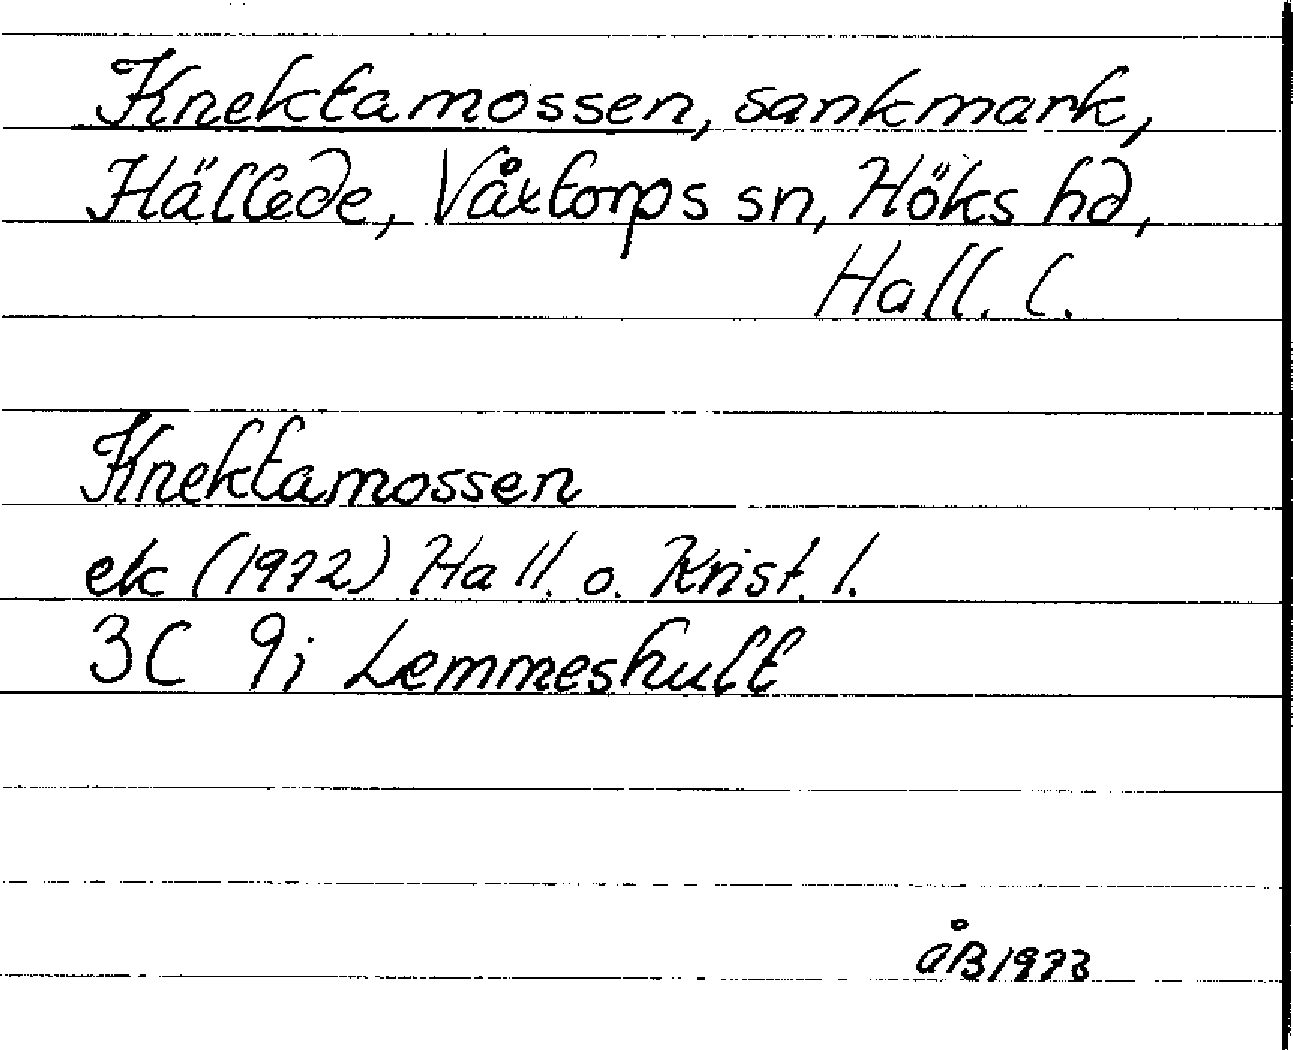 Knektamossen, sankmark,
Hällede, Våxtorps sn, Höks hd,
Hall. l.
Knektamossen
ek (1972) Hall. o. Krist. l.
3C 9i Lemmeshult
åB 1973